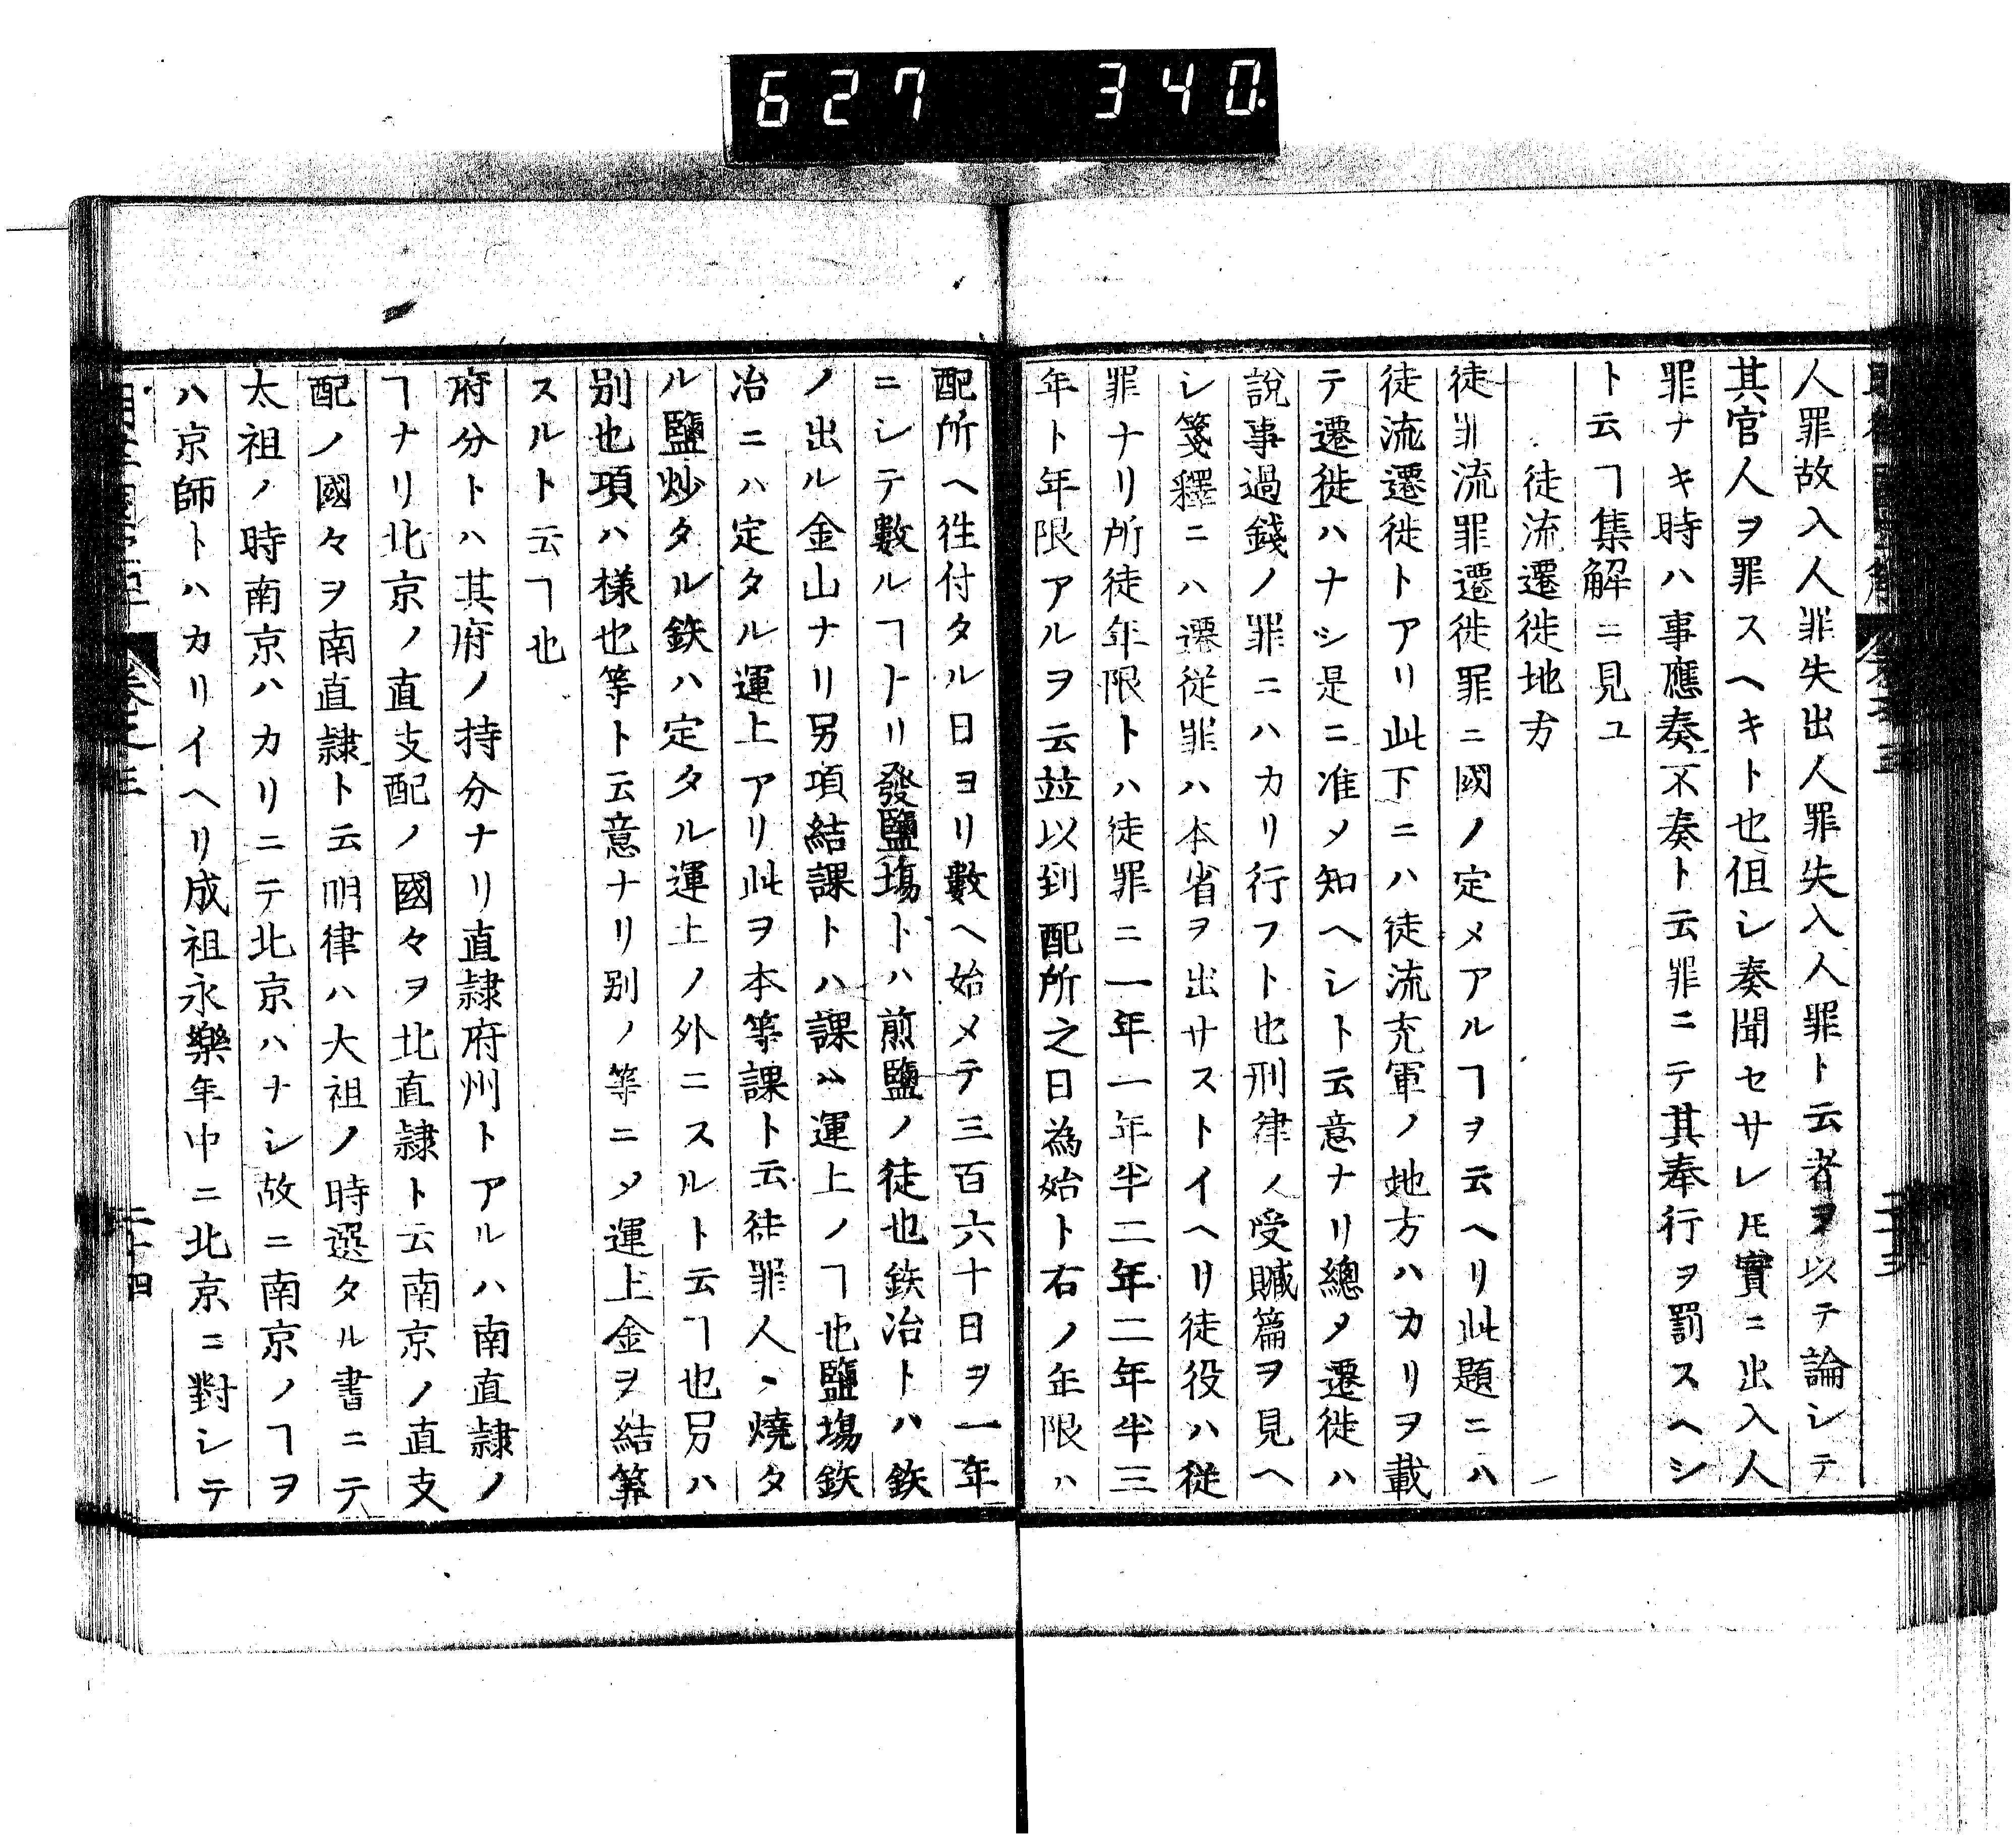 627 340
人罪故入人罪失出人罪失入人罪ト云者ヲ以テ論シテ
其官人ヲ罪スヘキト也但シ奏聞セサレ𪜈實ニ出入人
罪ナキ時ハ事應奏不奏ト云罪ニテ其奉行ヲ罰スヘシ
ト云ヿ集解ニ見ユ
徒流遷徙地方
徒罪流罪遷徙罪ニ國ノ定メアルヿヲ云ヘリ此題ニハ
徒流遷徙トアリ此下ニハ徒流充軍ノ地方ハカリヲ載
テ遷徙ハナシ是ニ准メ知ヘシト云意ナリ總メ遷徙ハ
說事過錢ノ罪ニハカリ行フト也刑律ノ受贓篇ヲ見ヘ
シ箋釋ニハ遷徙罪ハ本省ヲ出サストイヘリ徒役ハ從
罪ナリ所徒年限トハ徒罪ニ一年一年半二年二年半三
年ト年限アルヲ云竝以到配所之日為始ト右ノ年限ハ
配所ヘ徃付タル日ヨリ數ヘ始メテ三百六十日ヲ一年
ニシテ數ルヿトリ發鹽塲トハ煎鹽ノ徒也鉄冶トハ鉄
ノ出ル金山ナリ另項結課トハ課ハ運上ノヿ也鹽塲鉄
冶ニハ定タル運上アリ此ヲ本等課ト云徒罪人ヽ燒タ
ル鹽炒タル鉄ハ定タル運上ノ外ニスルト云ヿ也另ハ
别也項ハ樣也等ト云意ナリ别ノ等ニメ運上金ヲ結筭
スルト云ヿ也
府分トハ其府ノ持分ナリ直隸府州トアルハ南直隸ノ
ヿナリ北京ノ直支配ノ國々ヲ北直隸ト云南京ノ直支
配ノ國々ヲ南直隸ト云明律ハ大祖ノ時選タル書ニテ
太祖ノ時南京ハカリニテ北京ハナシ故ニ南京ノヿヲ
ハ京師トハカリイヘリ成祖永樂年中ニ北京ニ對シテ
二十四